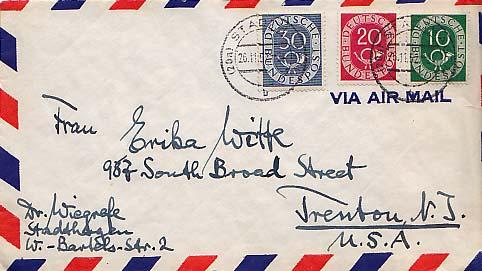 STADTHAGEN
(20a)
26.11.
b
DEUTSCHE BUNDESPOST
30
DEUTSCHE BUNDESPOST
20
DEUTSCHE BUNDESPOST
10
VIA AIR MAIL
Frau Erika Witte
987 South Broad Street
Trenton, N.J.
U.S.A.
Dr. Wiegrefe
Stadthagen
W.-Bartels-Str. 2